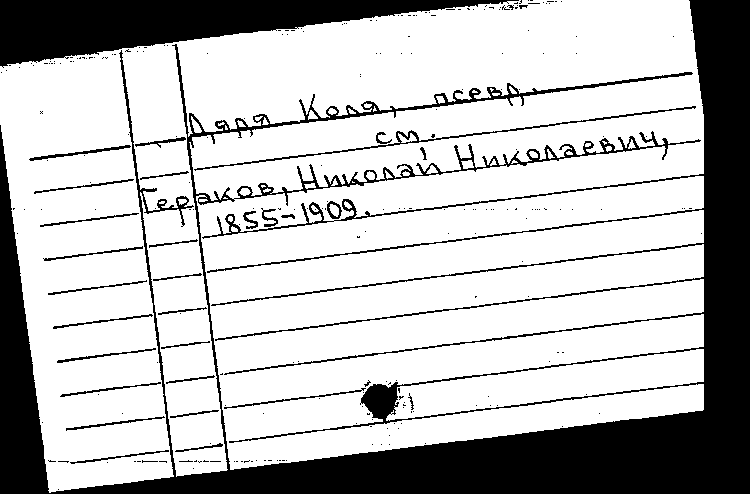 Дядя Коля, псевд.
см.
Гераков, Николай Николаевич,
1855-1909.